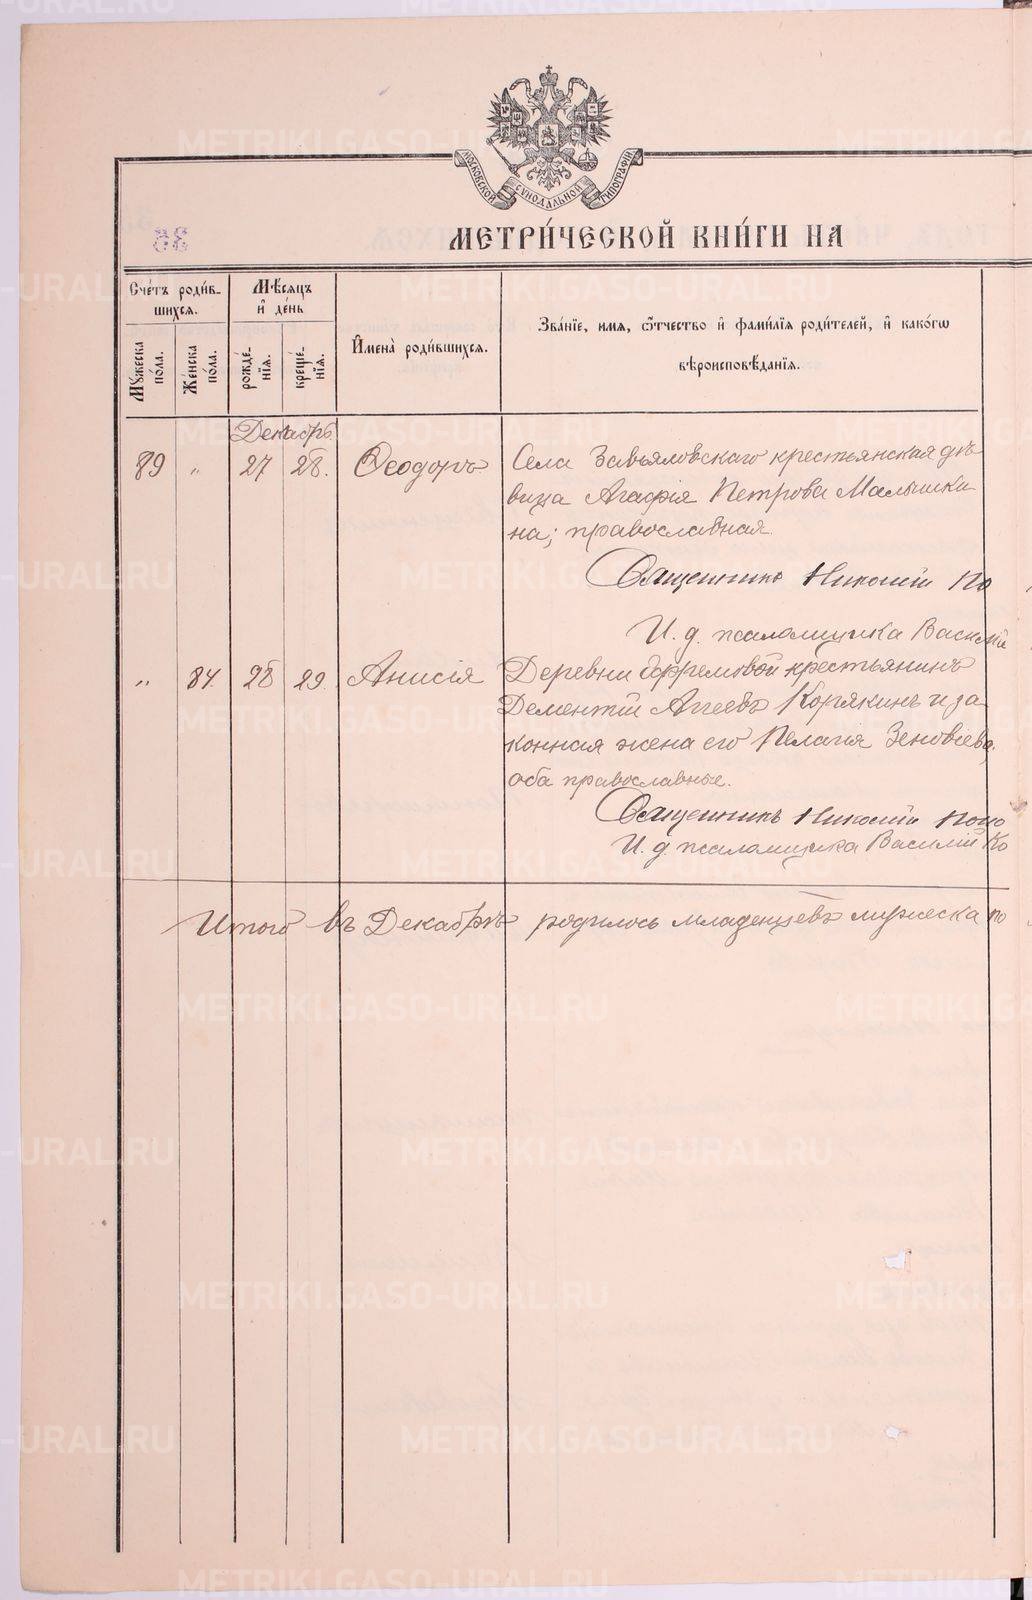 МОСКОВСКОЙ СѴНОДАЛЬНОЙ ТИПОГРАФІИ
МЕТРИ́ЧЕСКОЙ КНИ́ГИ НА
35
Сче́тъ роди́в-
шихся.
Мѣсяцъ
и де́нь
Имена̀ роди́вшихся.
Зва́нїе, имя, ѻ҆́тчество и фами́лїя роди́телей, и како́гѡ
вѣроисповѣ́данїя.
Мꙋ́жеска по́ла.
Же́нска по́ла.
рожде́-
нїя.
креще́-
нїя.
Декабрь
89 " 27 28. Ѳеодоръ Села Завьяловскаго крестьянская дѣ-
вица Агафія Петрова Малышки-
на; православная.
Священникъ Николай По
И. д. псаломщика Василій
" 84. 28 29. Анисія Деревни Ефремовой крестьянинъ
Дементій Аггеевъ Корякинъ и за-
конная жена его Пелагія Зеновіева,
оба православные.
Священникъ Николай Попо
И. д. псаломщика Василій Ко
Итого въ Декабрѣ родилось младенцевъ мужеска по
METRIKI.GASO-URAL.RU